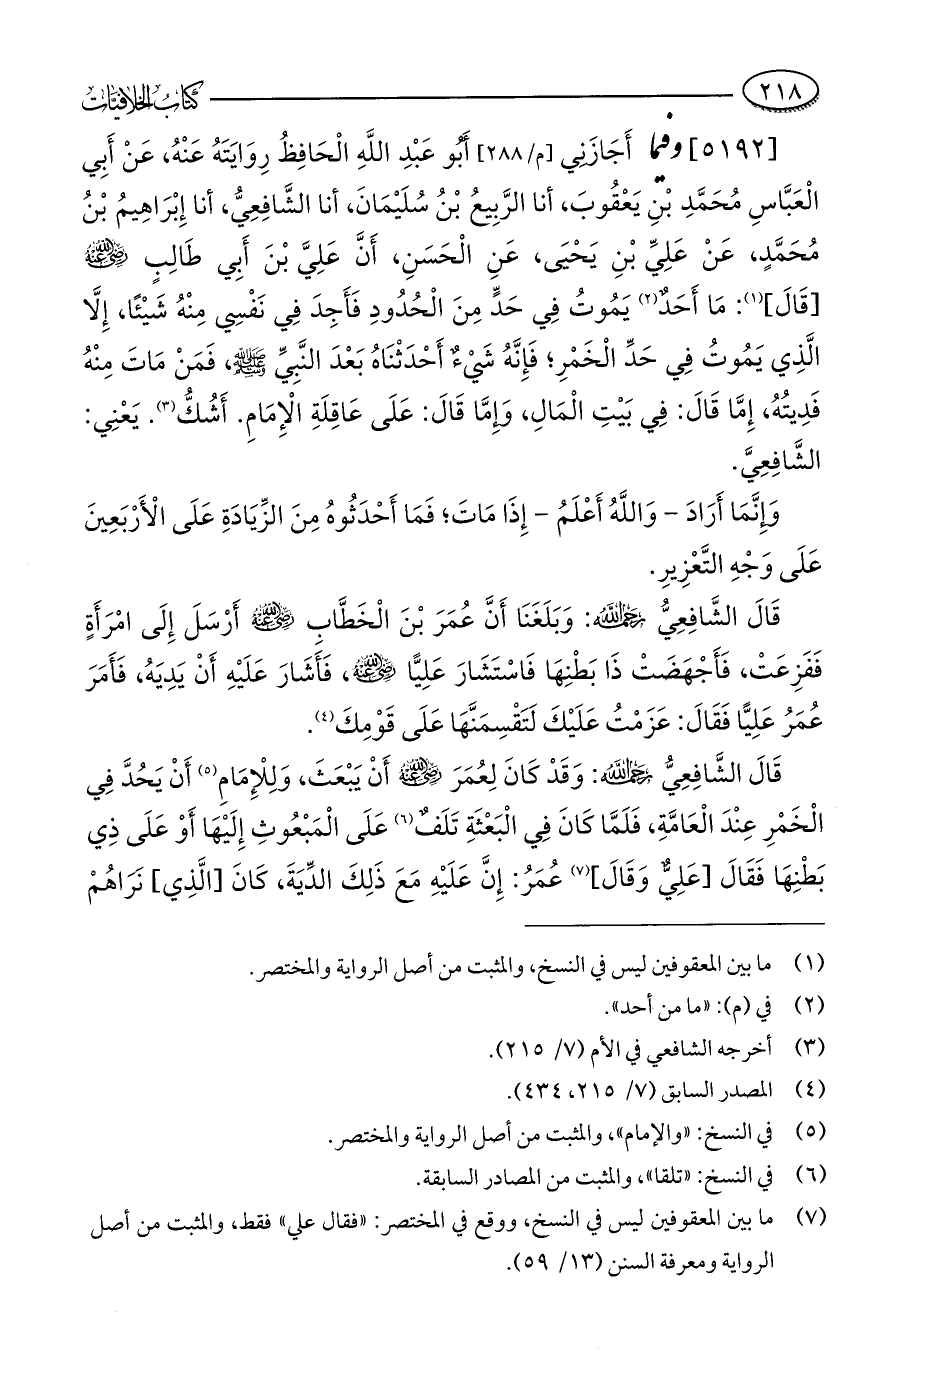 ٢١٨ كتاب الخلافيات
[٥١٩٢] وفيما أَجَازَنِي [م/ ٢٨٨] أَبُو عَبْدِ اللَّهِ الْحَافِظُ رِوَايَتَهُ عَنْهُ، عَنْ أَبِي
الْعَبَّاسِ مُحَمَّدِ بْنِ يَعْقُوبَ، أنا الرَّبِيعُ بْنُ سُلَيْمَانَ، أنا الشَّافِعِيُّ، أنا إِبْرَاهِيمُ بْنُ
مُحَمَّدٍ، عَنْ عَلِيِّ بْنِ يَحْيَى، عَنِ الْحَسَنِ، أَنَّ عَلِيَّ بْنَ أَبِي طَالِبٍ رضي الله عنه
[قَالَ](١): مَا أَحَدٌ(٢) يَمُوتُ فِي حَدٍّ مِنَ الْحُدُودِ فَأَجِدَ فِي نَفْسِي مِنْهُ شَيْئًا، إِلَّا
الَّذِي يَمُوتُ فِي حَدِّ الْخَمْرِ؛ فَإِنَّهُ شَيْءٌ أَحْدَثْنَاهُ بَعْدَ النَّبِيِّ ﷺ، فَمَنْ مَاتَ مِنْهُ
فَدِيتُهُ، إِمَّا قَالَ: فِي بَيْتِ الْمَالِ، وَإِمَّا قَالَ: عَلَى عَاقِلَةِ الْإِمَامِ. أَشُكُّ(٣). يَعْنِي:
الشَّافِعِيَّ.
وَإِنَّمَا أَرَادَ - وَاللَّهُ أَعْلَمُ - إِذَا مَاتَ؛ فَمَا أَحْدَثُوهُ مِنَ الزِّيَادَةِ عَلَى الْأَرْبَعِينَ
عَلَى وَجْهِ التَّعْزِيرِ.
قَالَ الشَّافِعِيُّ رحمه الله: وَبَلَغَنَا أَنَّ عُمَرَ بْنَ الْخَطَّابِ رضي الله عنه أَرْسَلَ إِلَى امْرَأَةٍ
فَفَزِعَتْ، فَأَجْهَضَتْ ذَا بَطْنِهَا فَاسْتَشَارَ عَلِيًّا رضي الله عنه، فَأَشَارَ عَلَيْهِ أَنْ يَدِيَهُ، فَأَمَرَ
عُمَرُ عَلِيًّا فَقَالَ: عَزَمْتُ عَلَيْكَ لَتَقْسِمَنَّهَا عَلَى قَوْمِكَ(٤).
قَالَ الشَّافِعِيُّ رحمه الله: وَقَدْ كَانَ لِعُمَرَ رضي الله عنه أَنْ يَبْعَثَ، وَلِلْإِمَامِ(٥) أَنْ يَحُدَّ فِي
الْخَمْرِ عِنْدَ الْعَامَّةِ، فَلَمَّا كَانَ فِي الْبَعْثَةِ تَلَفٌ(٦) عَلَى الْمَبْعُوثِ إِلَيْهَا أَوْ عَلَى ذِي
بَطْنِهَا فَقَالَ [عَلِيٌّ وَقَالَ](٧) عُمَرُ: إِنَّ عَلَيْهِ مَعَ ذَلِكَ الدِّيَةَ، كَانَ [الَّذِي] نَرَاهُمْ
(١) ما بين المعقوفين ليس في النسخ، والمثبت من أصل الرواية والمختصر.
(٢) في (م): «ما من أحد».
(٣) أخرجه الشافعي في الأم (٧/ ٢١٥).
(٤) المصدر السابق (٧/ ٢١٥، ٤٣٤).
(٥) في النسخ: «والإمام»، والمثبت من أصل الرواية والمختصر.
(٦) في النسخ: «تلقا»، والمثبت من المصادر السابقة.
(٧) ما بين المعقوفين ليس في النسخ، ووقع في المختصر: «فقال علي» فقط، والمثبت من أصل
الرواية ومعرفة السنن (١٣/ ٥٩).